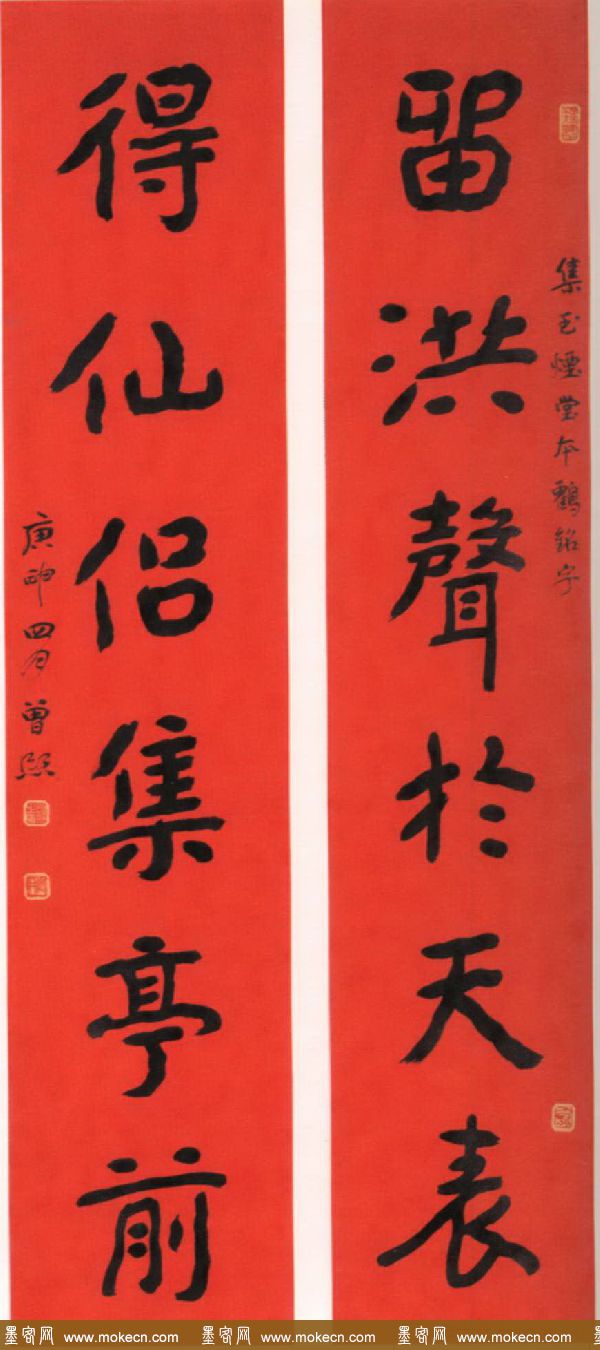 集玉煙堂本鶴銘字
留洪聲於天表
得仙侣集亭前
庚申四月曾熙
墨客网 www.mokecn.com 墨客网 www.mokecn.com 墨客网 www.mokecn.com